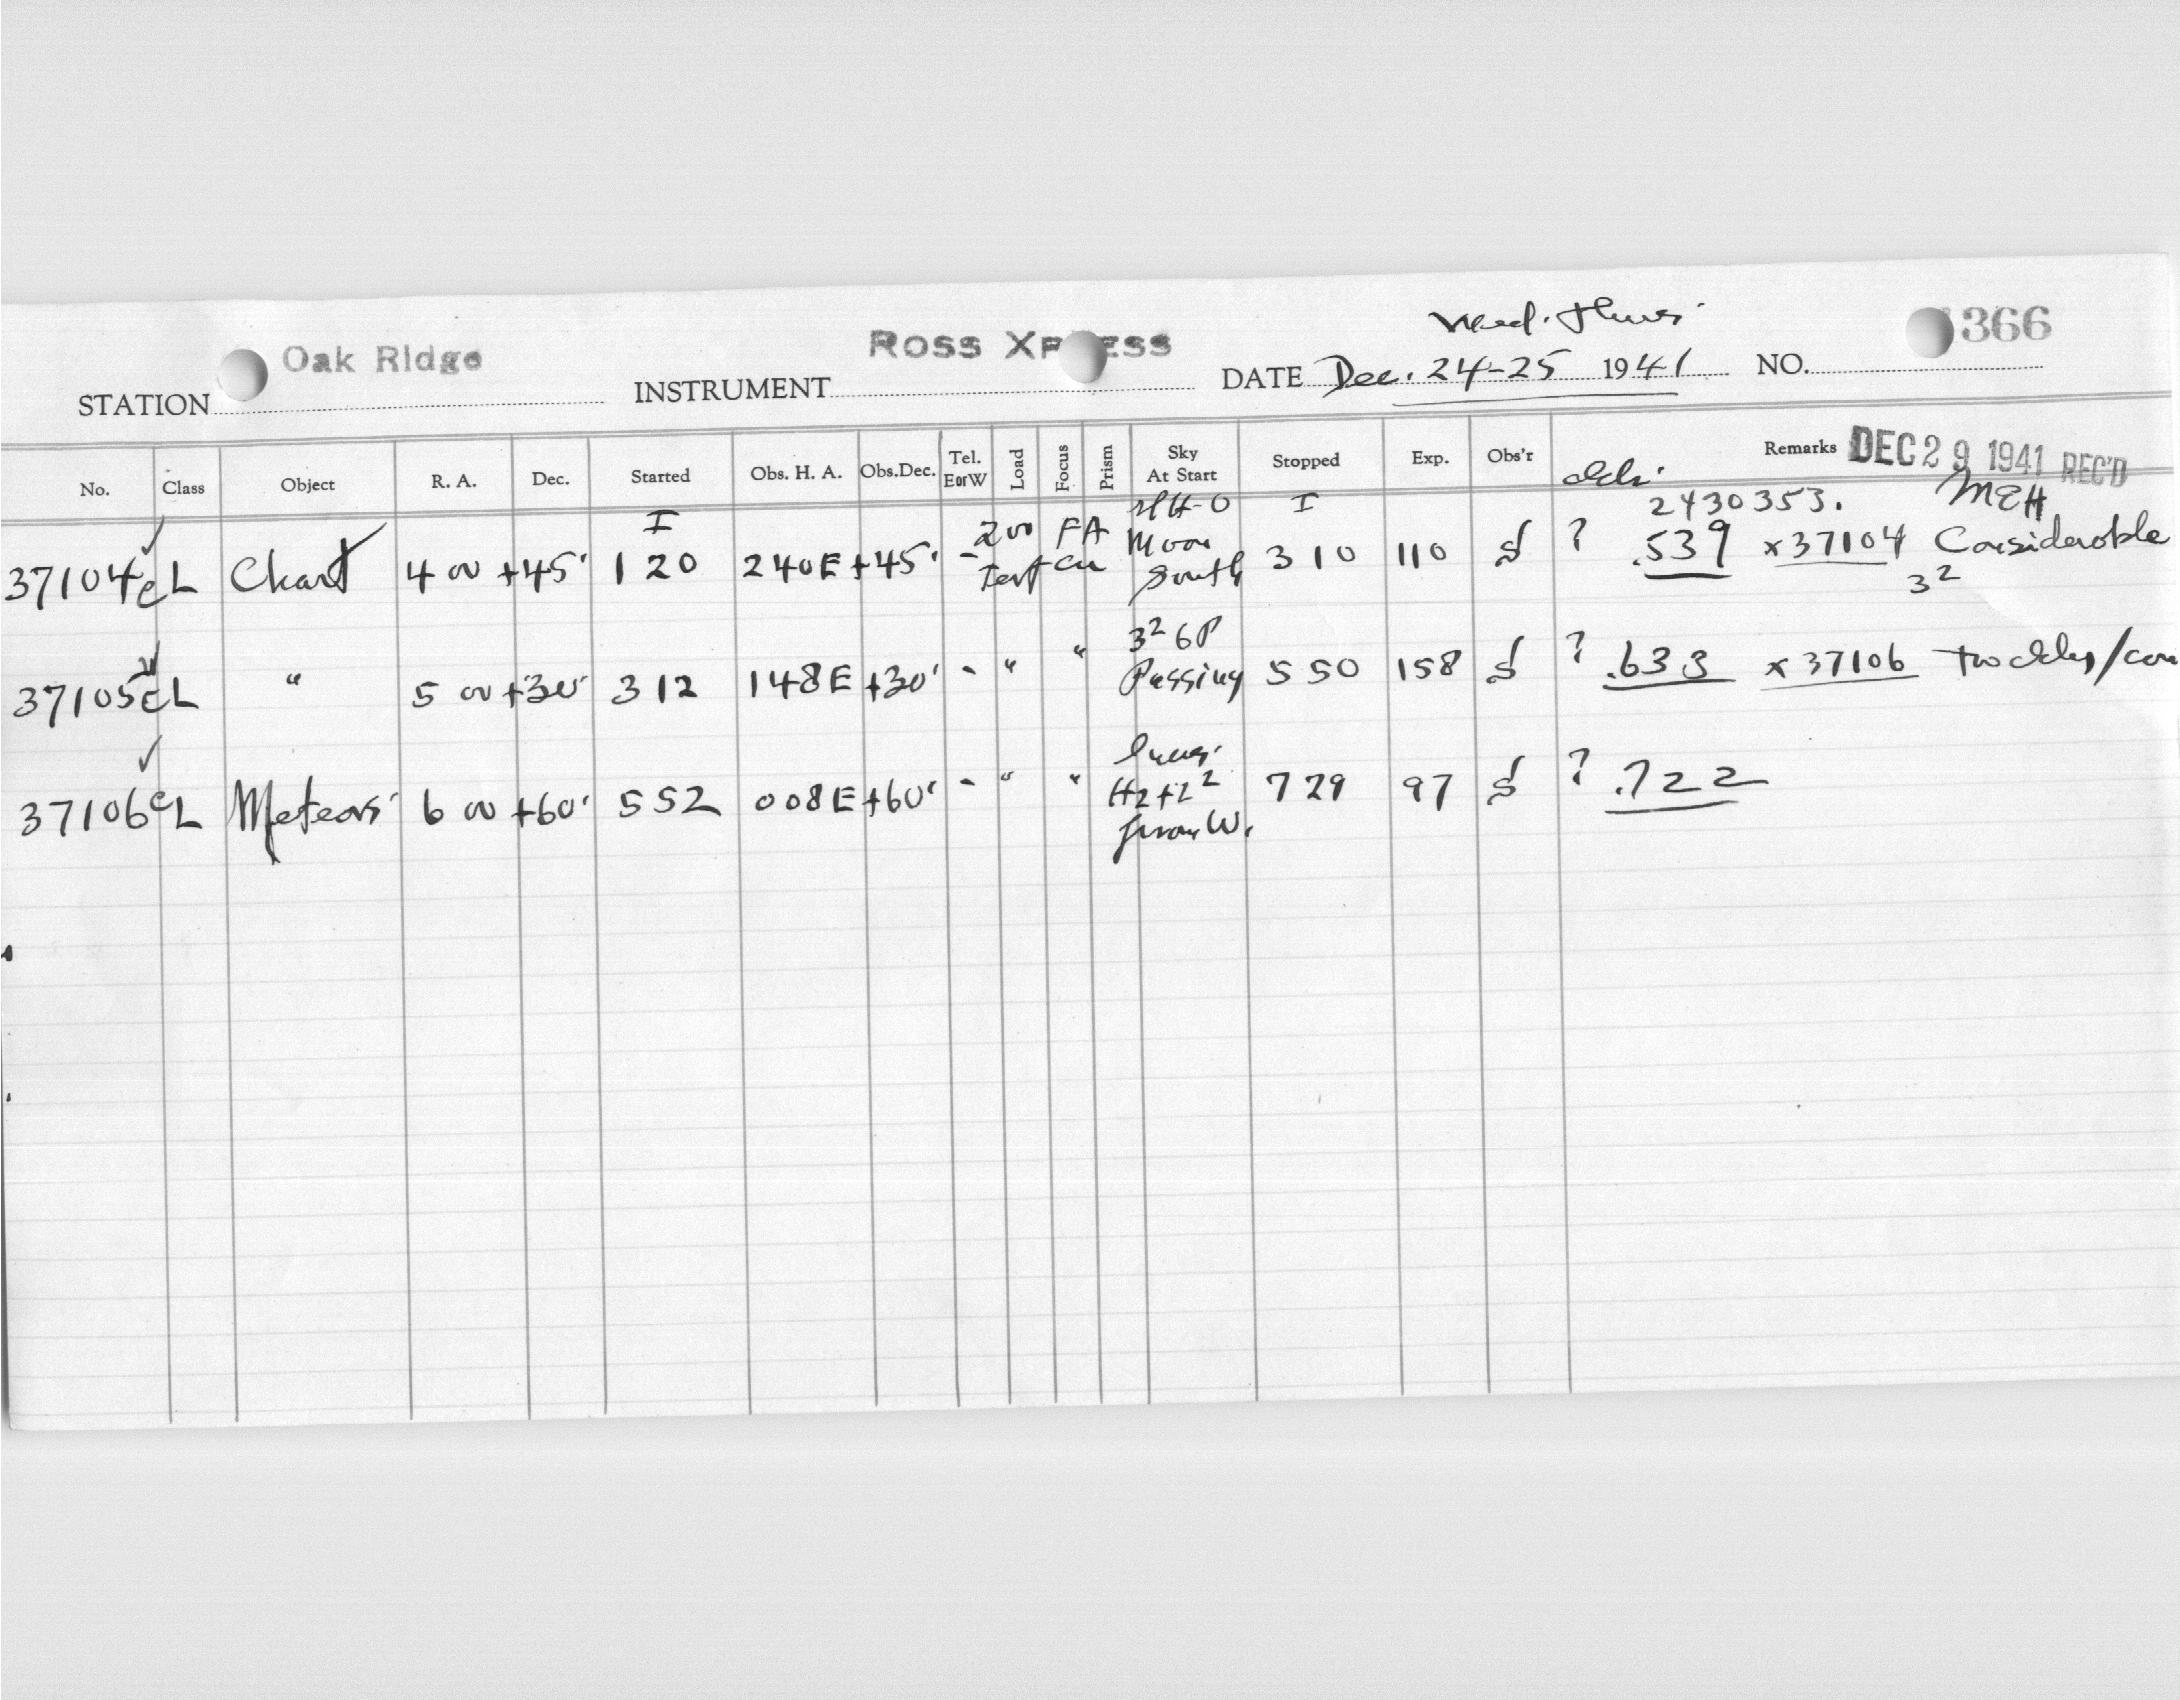 Wed. Thurs.
STATION Oak Ridge INSTRUMENT ROSS XPRESS DATE Dec. 24-25 1941 NO. 366
No. Class Object R. A. Dec. Started Obs. H. A. Obs.Dec. Tel. E or W Load Focus Prism Sky At Start Stopped Exp. Obs'r Remarks DEC 29 1941 REC'D
I I 2430353. MEH
37104 eL Chart 4 00 +45° 1 20 2 40 E +45° - 200 FA Moon South 3 10 110 ? .539 x 37104 Considerable
3²
37105 eL " 5 00 +30° 3 12 1 48 E +30° - " " 3² 6P Passing 5 50 158 ? .633 x 37106
37106 eL Meteors 6 00 +60° 5 52 0 08 E +60° - " " from W. 7 29 97 ? .722